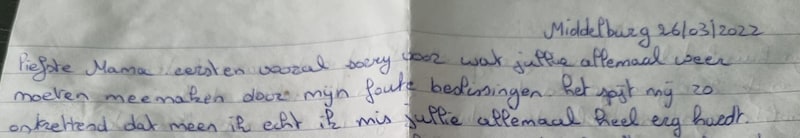 Middelburg 26/03/2022
liefste Mama eersten vooral sorry voor wat jullie allemaal weer
moeten meemaken door mijn foute beslissingen het spijt mij zo
ontzettend dat meen ik echt ik mis jullie allemaal heel erg hardt.